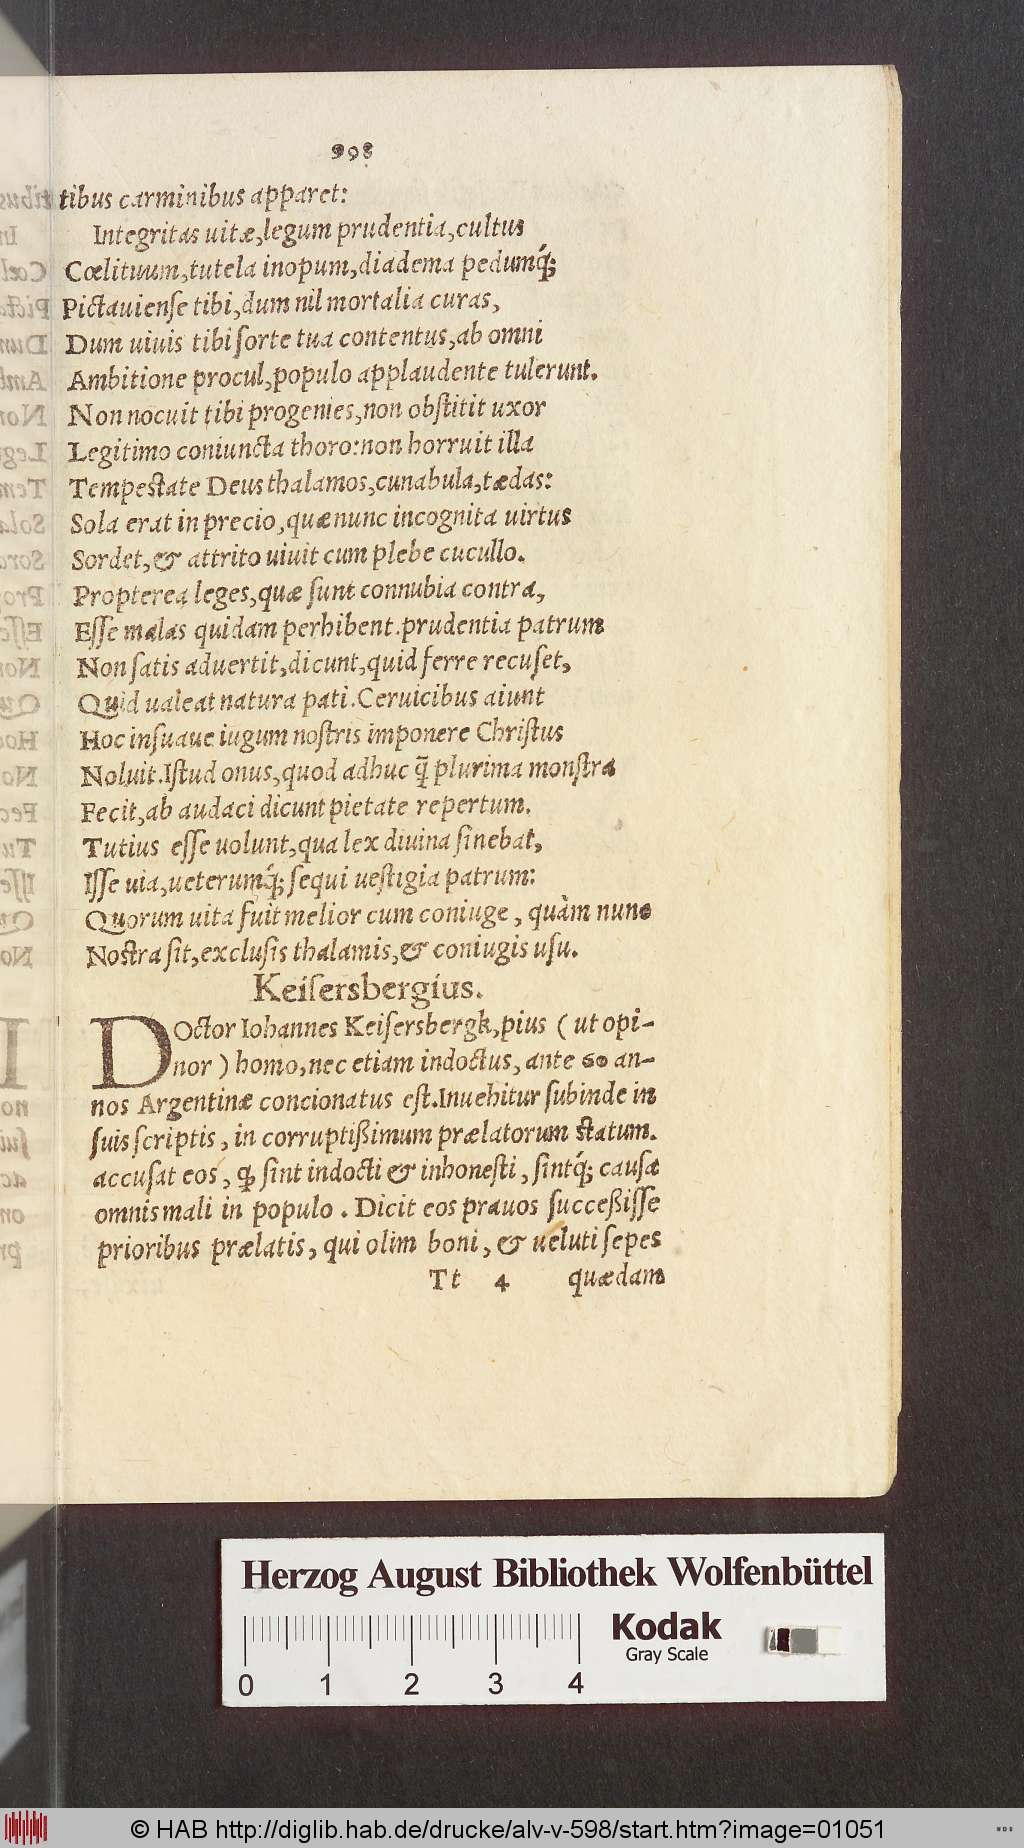 998
tibus carminibus apparet:
Integritas uitæ,legum prudentia,cultus
Cœlituum,tutela inopum,diadema pedumq́;
Pictauienſe tibi,dum nil mortalia curas,
Dum uiuis tibi ſorte tua contentus,ab omni
Ambitione procul,populo applaudente tulerunt.
Non nocuit tibi progenies,non obſtitit uxor
Legitimo coniuncta thoro:non horruit illa
Tempeſtate Deus thalamos,cunabula,tædas:
Sola erat in precio,quæ nunc incognita uirtus
Sordet,& attrito uiuit cum plebe cucullo.
Propterea leges,quæ ſunt connubia contra,
Eſſe malas quidam perhibent.prudentia patrum
Non ſatis aduertit,dicunt,quid ferre recuſet,
Quid ualeat natura pati.Ceruicibus aiunt
Hoc inſuaue iugum noſtris imponere Chriſtus
Noluit.Iſtud onus,quod adhuc q̃ plurima monſtra
Fecit,ab audaci dicunt pietate repertum.
Tutius eſſe uolunt,qua lex diuina ſinebat,
Iſſe uia,ueterumq́; ſequi ueſtigia patrum:
Quorum uita fuit melior cum coniuge, quàm nunc
Noſtra ſit,excluſis thalamis,& coniugis uſu.
Keiſersbergius.
DOctor Iohannes Keiſersbergk,pius (ut opi-
nor) homo,nec etiam indoctus, ante 60 an-
nos Argentinæ concionatus eſt.Inuehitur ſubinde in
ſuis ſcriptis, in corruptißimum prælatorum ſtatum.
accuſat eos, ꝙ ſint indocti & inhoneſti, ſintq́; cauſa
omnis mali in populo. Dicit eos prauos ſucceßiſſe
prioribus prælatis, qui olim boni, & ueluti ſepes
Tt 4 quædam
Herzog August Bibliothek Wolfenbüttel
Kodak
Gray Scale
0 1 2 3 4
© HAB http://diglib.hab.de/drucke/alv-v-598/start.htm?image=01051